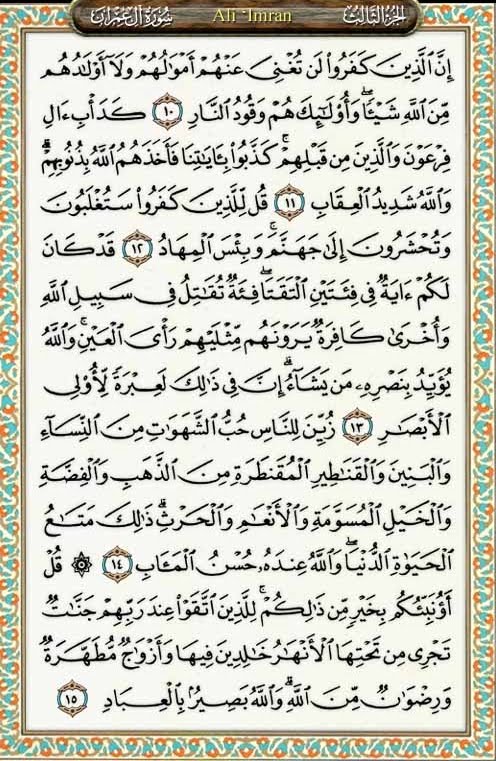 سُورَةُ آلِ عِمْرَان Ali 'Imran الجُزْءُ الثَّالِثُ
إِنَّ ٱلَّذِينَ كَفَرُوا۟ لَن تُغْنِىَ عَنْهُمْ أَمْوَٰلُهُمْ وَلَآ أَوْلَـٰدُهُم
مِّنَ ٱللَّهِ شَيْـًٔا ۖ وَأُو۟لَـٰٓئِكَ هُمْ وَقُودُ ٱلنَّارِ ١٠ كَدَأْبِ ءَالِ
فِرْعَوْنَ وَٱلَّذِينَ مِن قَبْلِهِمْ ۚ كَذَّبُوا۟ بِـَٔايَـٰتِنَا فَأَخَذَهُمُ ٱللَّهُ بِذُنُوبِهِمْ ۗ
وَٱللَّهُ شَدِيدُ ٱلْعِقَابِ ١١ قُل لِّلَّذِينَ كَفَرُوا۟ سَتُغْلَبُونَ
وَتُحْشَرُونَ إِلَىٰ جَهَنَّمَ ۚ وَبِئْسَ ٱلْمِهَادُ ١٢ قَدْ كَانَ
لَكُمْ ءَايَةٌ فِى فِئَتَيْنِ ٱلْتَقَتَا ۖ فِئَةٌ تُقَـٰتِلُ فِى سَبِيلِ ٱللَّهِ
وَأُخْرَىٰ كَافِرَةٌ يَرَوْنَهُم مِّثْلَيْهِمْ رَأْىَ ٱلْعَيْنِ ۚ وَٱللَّهُ
يُؤَيِّدُ بِنَصْرِهِۦ مَن يَشَآءُ ۗ إِنَّ فِى ذَٰلِكَ لَعِبْرَةً لِّأُو۟لِى
ٱلْأَبْصَـٰرِ ١٣ زُيِّنَ لِلنَّاسِ حُبُّ ٱلشَّهَوَٰتِ مِنَ ٱلنِّسَآءِ
وَٱلْبَنِينَ وَٱلْقَنَـٰطِيرِ ٱلْمُقَنطَرَةِ مِنَ ٱلذَّهَبِ وَٱلْفِضَّةِ
وَٱلْخَيْلِ ٱلْمُسَوَّمَةِ وَٱلْأَنْعَـٰمِ وَٱلْحَرْثِ ۗ ذَٰلِكَ مَتَـٰعُ
ٱلْحَيَوٰةِ ٱلدُّنْيَا ۖ وَٱللَّهُ عِندَهُۥ حُسْنُ ٱلْمَـَٔابِ ١٤ ۞ قُلْ
أَؤُنَبِّئُكُم بِخَيْرٍ مِّن ذَٰلِكُمْ ۚ لِلَّذِينَ ٱتَّقَوْا۟ عِندَ رَبِّهِمْ جَنَّـٰتٌ
تَجْرِى مِن تَحْتِهَا ٱلْأَنْهَـٰرُ خَـٰلِدِينَ فِيهَا وَأَزْوَٰجٌ مُّطَهَّرَةٌ
وَرِضْوَٰنٌ مِّنَ ٱللَّهِ ۗ وَٱللَّهُ بَصِيرٌۢ بِٱلْعِبَادِ ١٥